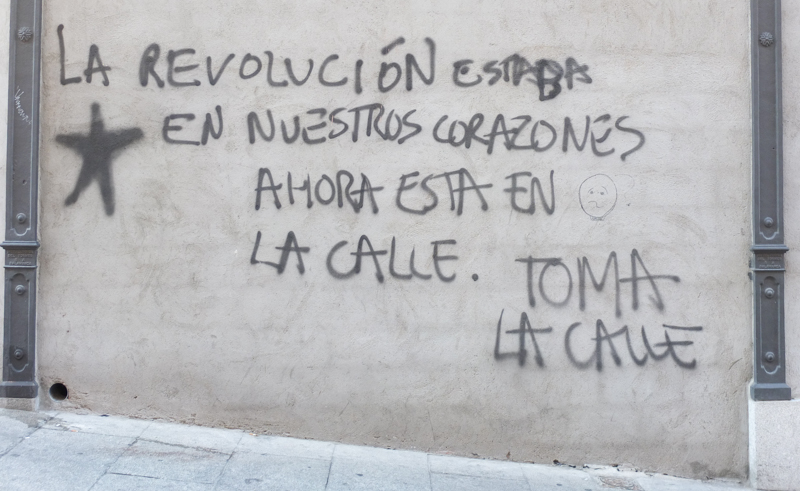 LA REVOLUCIÓN ESTABA
EN NUESTROS CORAZONES
AHORA ESTA EN
LA CALLE.
TOMA
LA CALLE